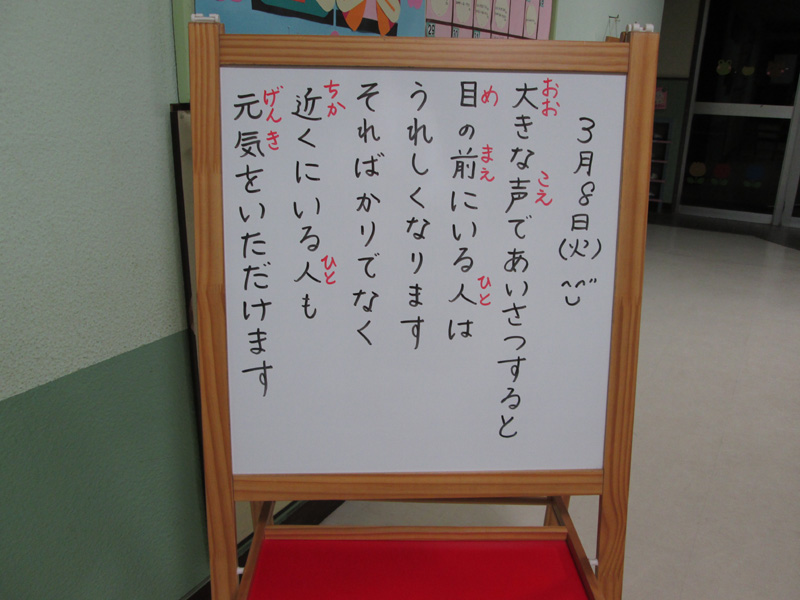 3月8日(火) ^^
大きな声であいさつすると
おお こえ
目の前にいる人は
め まえ ひと
うれしくなります
そればかりでなく
近くにいる人も
ちか ひと
元気をいただけます
げんき